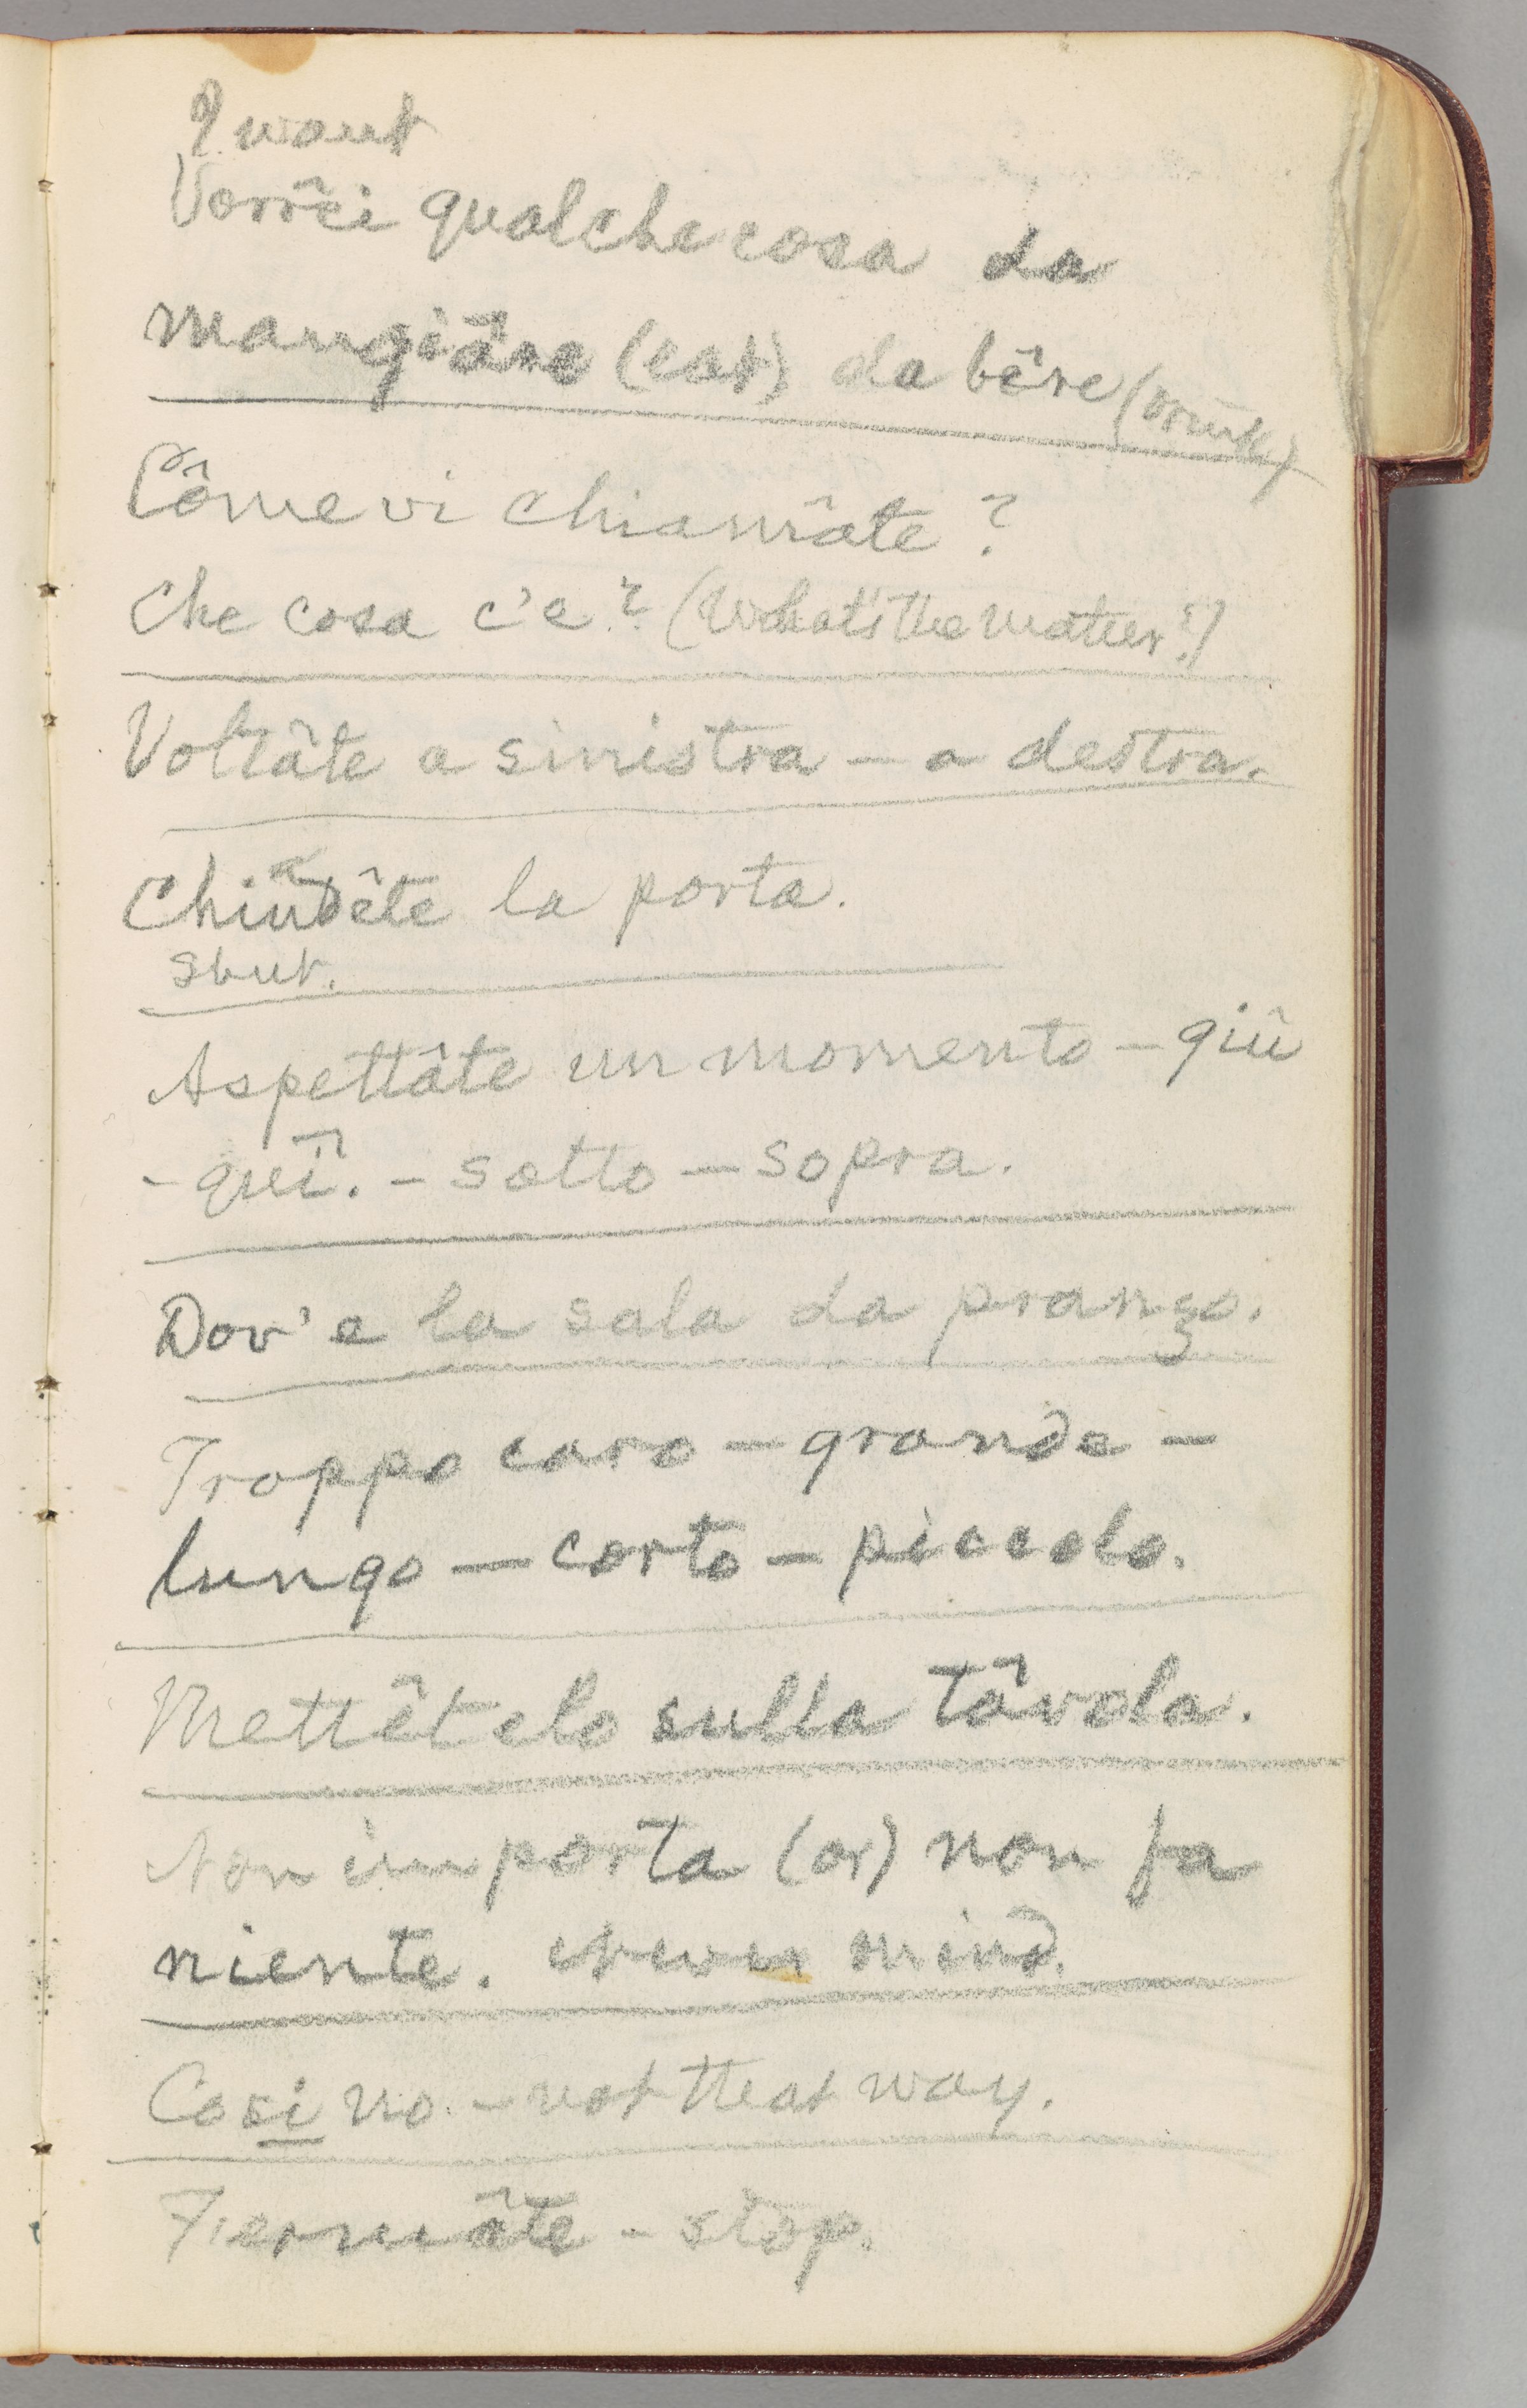 I want
Vorrêi qualche cosa da
mangiâre (eat) da bêre (drink)
Côme vi chiamâte?
Che cosa c'e? (What's the matter?)
Voltâte a sinistra — a destra.
Chiudête la porta.
shut.
Aspettâte un momento — giû
- quî. — sotto — sopra.
Dov'e la sala da pranzo.
Troppo caro — grande —
lungo — corto — piccolo.
Mettêtelo sulla tâvola.
Non importa (or) non fa
niente. never mind.
Cosi no. — not that way.
Fermâte — stop.